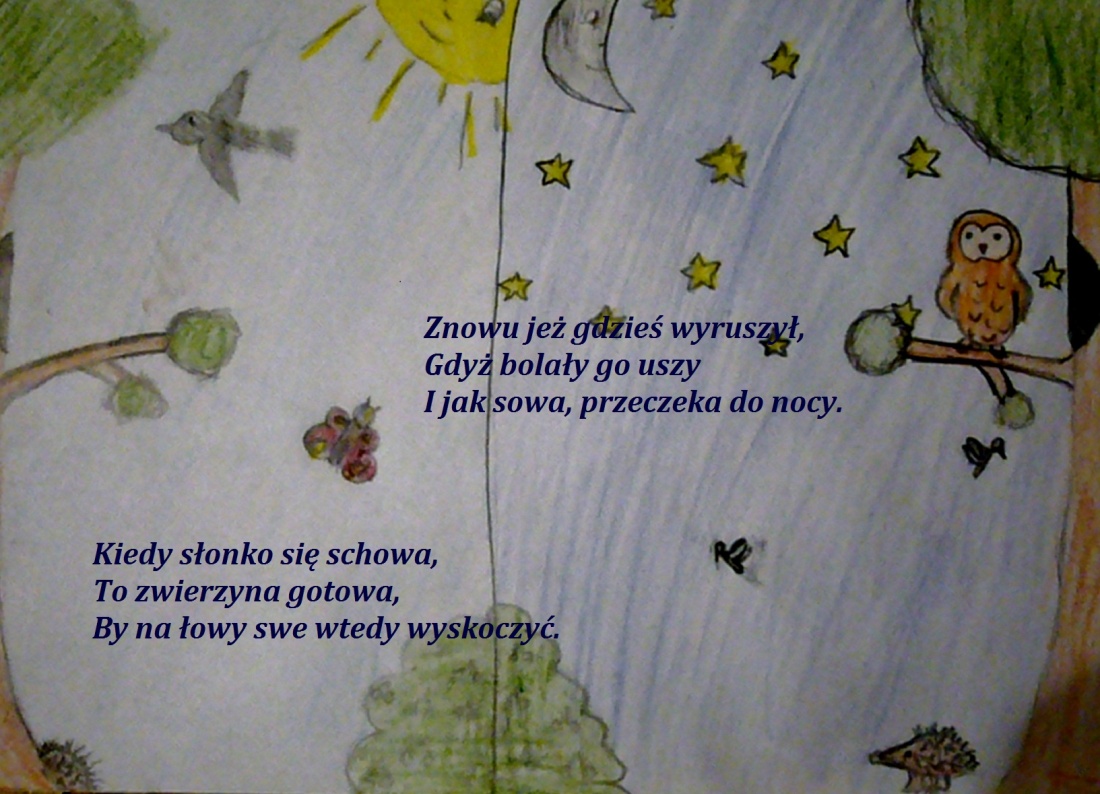 Znowu jeż gdzieś wyruszył,
Gdyż bolały go uszy
I jak sowa, przeczeka do nocy.
Kiedy słonko się schowa,
To zwierzyna gotowa,
By na łowy swe wtedy wyskoczyć.